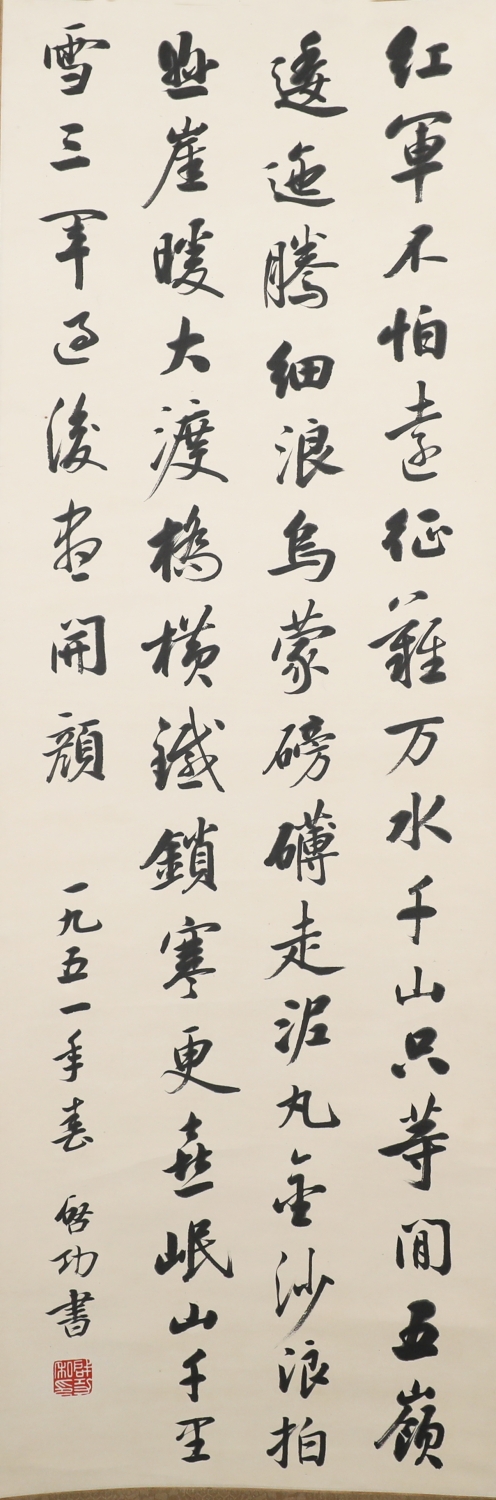 紅軍不怕遠征難万水千山只等閒五嶺
逶迤騰細浪烏蒙磅礴走泥丸金沙浪拍
悬崖暖大渡橋橫鐵鎖寒更喜岷山千里
雪三軍過後盡開顏
一九五一年春 啓功書
啟功私印